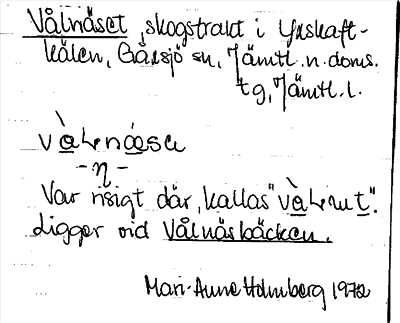 Vålnäset, skogstrakt i Yxskaft-
kälen, Gåxsjö sn, Jämtl. n. doms.
tg, Jämtl. l.
- η -
Var risigt där, kallas
Ligger vid Vålnäsbäcken.
Mari-Anne Holmberg 1972